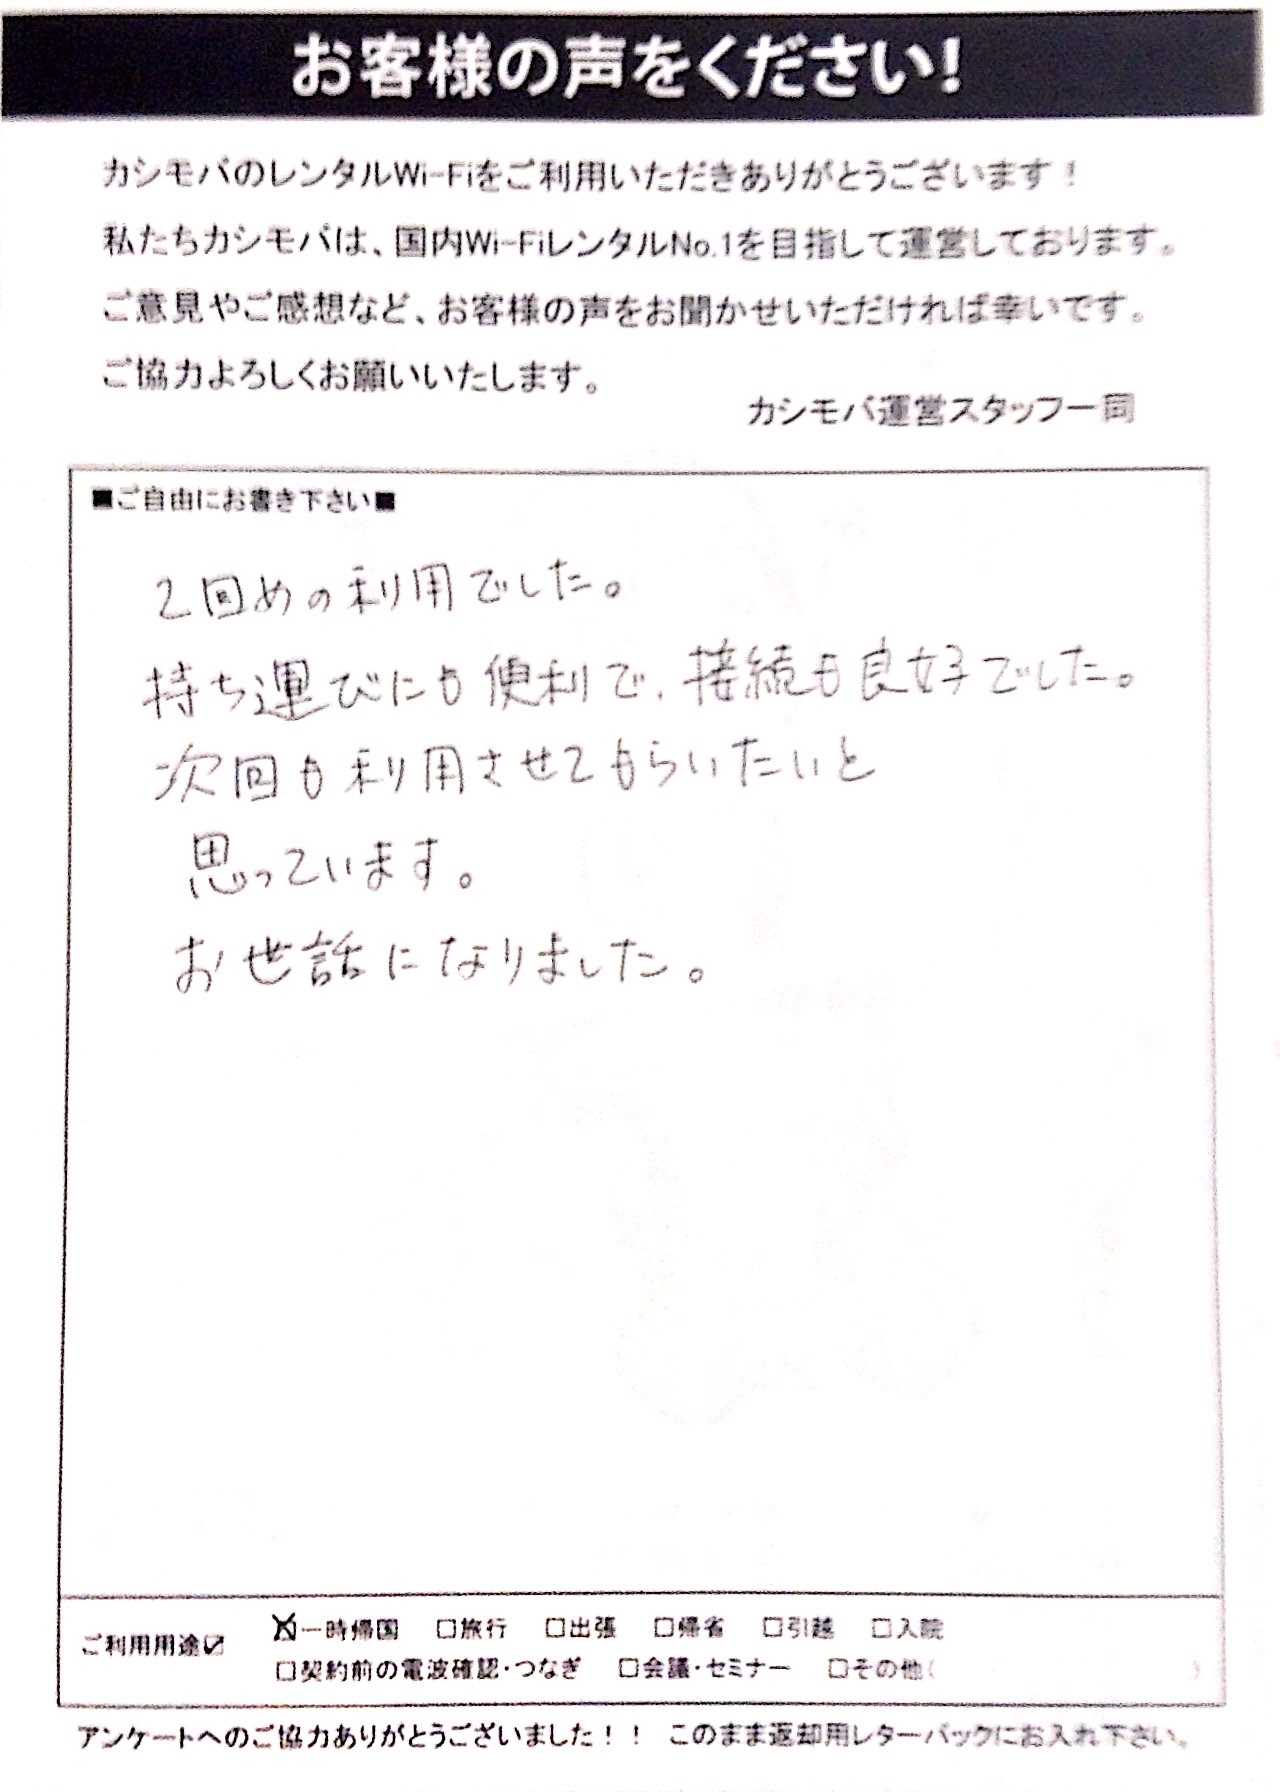 お客様の声をください!
カシモバのレンタルWi-Fiをご利用いただきありがとうございます!
私たちカシモバは、国内Wi-FiレンタルNo.1を目指して運営しております。
ご意見やご感想など、お客様の声をお聞かせいただければ幸いです。
ご協力よろしくお願いいたします。
カシモバ運営スタッフ一同
■ご自由にお書き下さい■
2回めの利用でした。
持ち運びにも便利で、接続も良好でした。
次回も利用させてもらいたいと
思っています。
お世話になりました。
ご利用用途☑ ☒一時帰国 □旅行 □出張 □帰省 □引越 □入院
□契約前の電波確認・つなぎ □会議・セミナー □その他( )
アンケートへのご協力ありがとうございました!! このまま返却用レターパックにお入れ下さい。